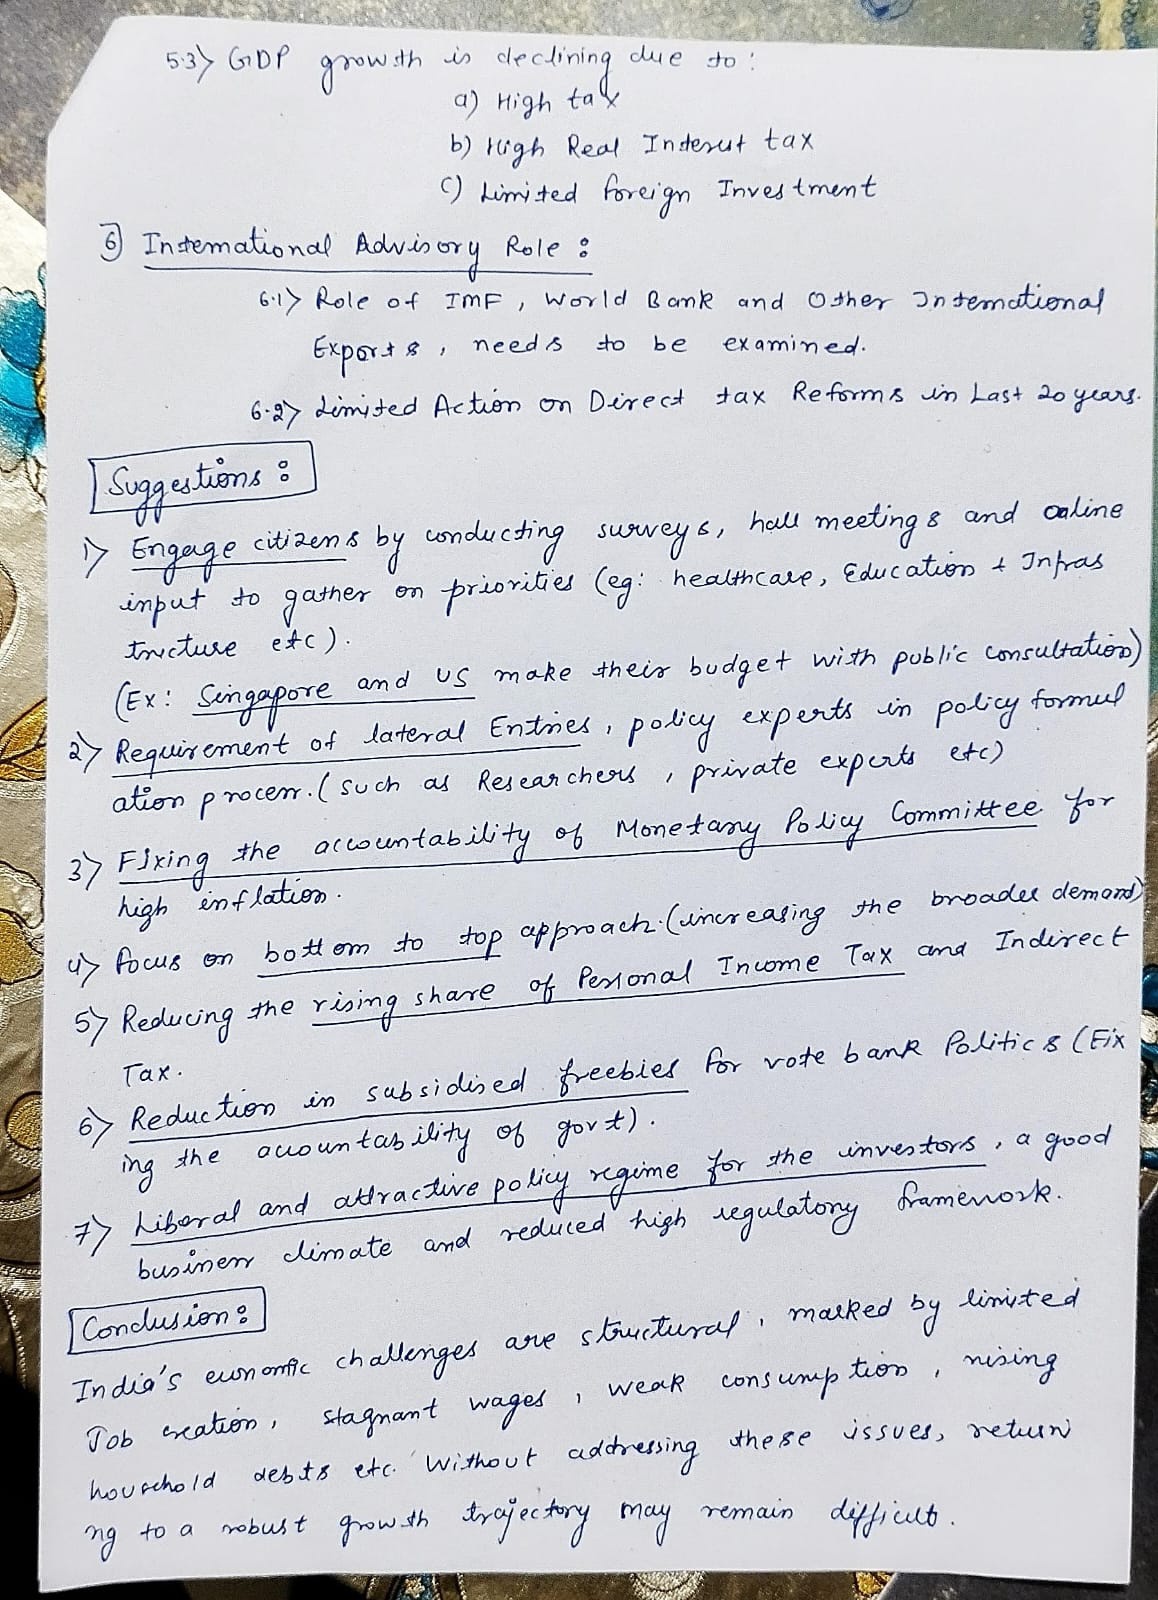 5.3> GDP growth is declining due to:
a) High tax
b) High Real Interest tax
c) Limited foreign Investment
6) International Advisory Role :
6.1> Role of IMF, World Bank and Other International
Experts, needs to be examined.
6.2> Limited Action on Direct tax Reforms in Last 20 years.
Suggestions :
1> Engage citizens by conducting surveys, hall meetings and online
input to gather on priorities (eg: healthcare, Education & Infras
tructure etc).
(Ex: Singapore and US make their budget with public consultation)
2> Requirement of lateral Entries, policy experts in policy formul
ation process. (such as Researchers, private experts etc)
3> Fixing the accountability of Monetary Policy Committee for
high inflation.
4> focus on bottom to top approach. (increasing the broader demand)
5> Reducing the rising share of Personal Income Tax and Indirect
Tax.
6> Reduction in subsidised freebies for vote bank Politics (Fix
ing the accountability of govt).
7> Liberal and attractive policy regime for the investors, a good
business climate and reduced high regulatory framework.
Conclusion:
India's economic challenges are structural, marked by limited
Job creation, stagnant wages, weak consumption, rising
household debts etc. Without addressing these issues, returni
ng to a robust growth trajectory may remain difficult.